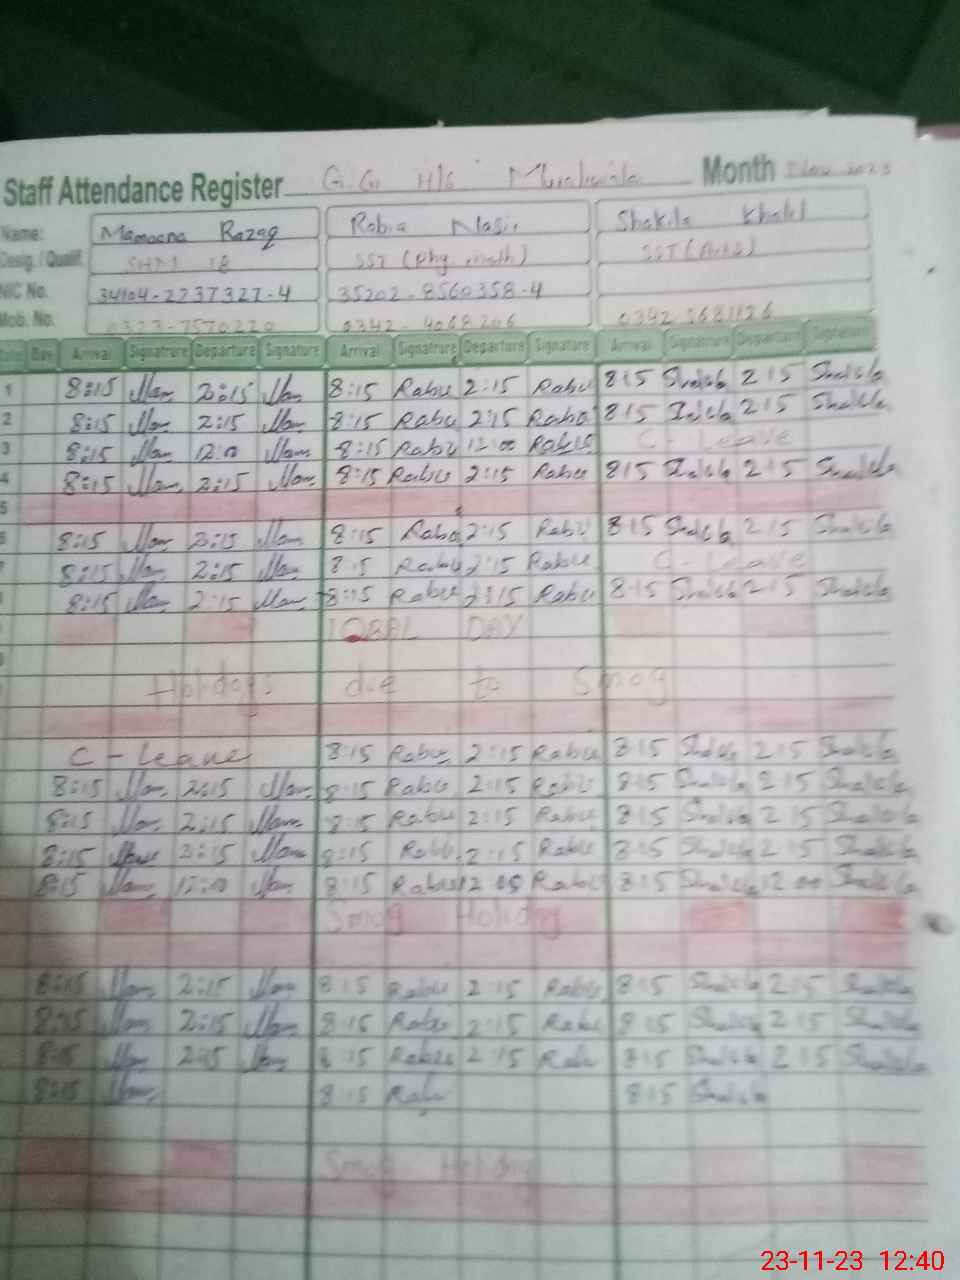 Staff Attendance Register G.G H/S Month Nov 2023
Name: Mamoona Razaq Robia Nasir Shakila Khalil
Desig. / Qualif. SHM 18 SST (Phy. math) SST (Arts)
NIC No. 34104-2737327-4 35202-8560358-4
Mob. No. 0323-7570220 0342-4068206 0342 3681126
Date Day Arrival Signatrure Departure Signature Arrival Signatrure Departure Signature Arrival Signatrure Departure Signature
1 8:15 Mam 2:15 Mam 8:15 Rabu 2:15 Rabu 8 15 Shakila 2 15 Shakila
2 8:15 Mam 2:15 Mam 8:15 Rabu 2:15 Rabu 8 15 Shakila 2 15 Shakila
3 8:15 Mam 12:00 Mam 8:15 Rabu 12:00 Rabu C - Leave
4 8:15 Mam 2:15 Mam 8:15 Rabu 2:15 Rabu 8 15 Shakila 2 15 Shakila
5
6 8:15 Mam 2:15 Mam 8:15 Rabu 2:15 Rabu 8 15 Shakila 2 15 Shakila
8:15 Mam 2:15 Mam 8 15 Rabu 2:15 Rabu C - Leave
8:15 Mam 2:15 Mam 8:15 Rabu 2:15 Rabu 8 15 Shakila 2 15 Shakila
IQBAL DAY
Holidays due to Smog
C - Leave 8:15 Rabu 2:15 Rabu 8 15 Shakila 2 15 Shakila
8:15 Mam 2:15 Mam 8:15 Rabu 2:15 Rabu 8 15 Shakila 2 15 Shakila
8:15 Mam 2:15 Mam 8:15 Rabu 2:15 Rabu 8 15 Shakila 2 15 Shakila
8:15 Mam 2:15 Mam 8:15 Rabu 2:15 Rabu 8 15 Shakila 2 15 Shakila
8:15 Mam 12:00 Mam 8:15 Rabu 12 00 Rabu 8 15 Shakila 12 00 Shakila
Smog Holiday
8:15 Mam 2:15 Mam 8 15 Rabu 2 15 Rabu 8 15 Shakila 2 15 Shakila
8:15 Mam 2:15 Mam 8:15 Rabu 2:15 Rabu 8 15 Shakila 2 15 Shakila
8:15 Mam 2:15 Mam 8 15 Rabu 2 15 Rabu 8 15 Shakila 2 15 Shakila
8:15 Mam 8 15 Rabu 8 15 Shakila
Smog Holiday
23-11-23 12:40